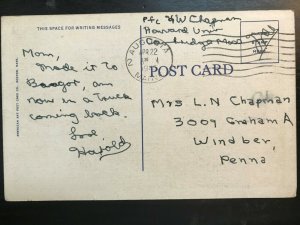 THIS SPACE FOR WRITING MESSAGES
Mom,
Made it to
Bangor, am
now in a truck
coming back.
Love
Harold
Pfc H W Chapman
Harvard Univ
Cambridge Mass
AUGUSTA
POST CARD
Mrs L. N Chapman
3009 Graham A
Windber,
Penna